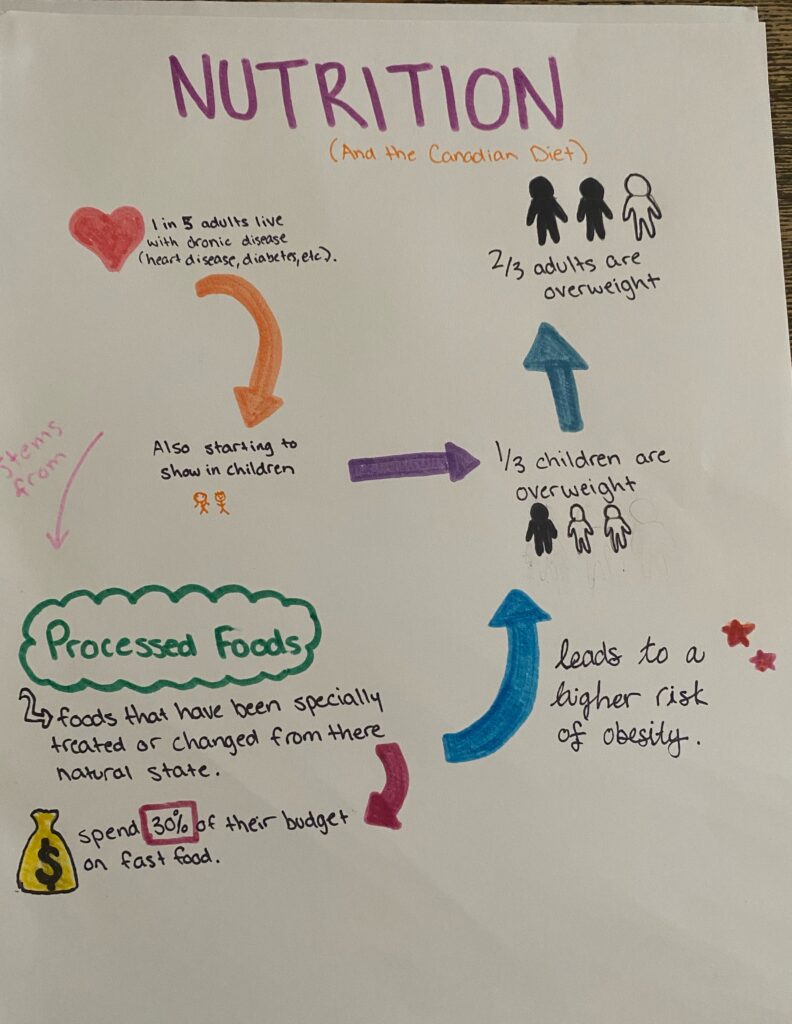 NUTRITION
(And the Canadian Diet)
1 in 5 adults live
with cronic disease
(heart disease, diabetes, etc).
2/3 adults are
overweight
Also starting to
show in children
1/3 children are
overweight
stems
from
Processed Foods
foods that have been specially
treated or changed from there
natural state.
leads to a
higher risk
of obesity.
spend 30% of their budget
on fast food.
$